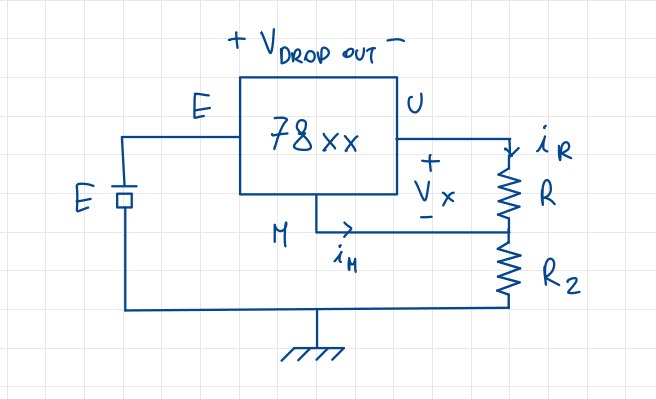 + V DROP OUT -
E
U
78xx
i R
+
E
V x
R
-
M
i M
R 2